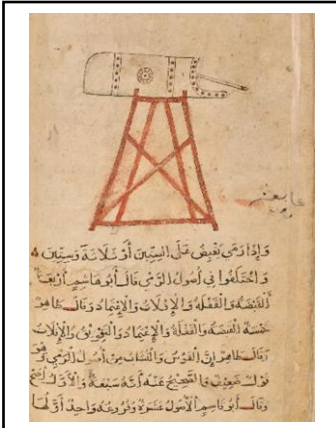 وإذا رمي بقبض على الستين أو ثلاثة وستين
واختلفوا في أصول الرمي قال أبو هاشم أربعة
القبضة والقفلة والإفلات والإعتماد وقال طاهر
خمسة القبضة والقفلة والإعتماد والتفويق والإفلات
وقال طاهر إن القوس والنشاب من أصول الرمي وهو
قول ضعيف والصحيح عنه أنه سبعة والأول أصح
وقال أبو هاشم الأصول عشرة وفروعه واحد أولها